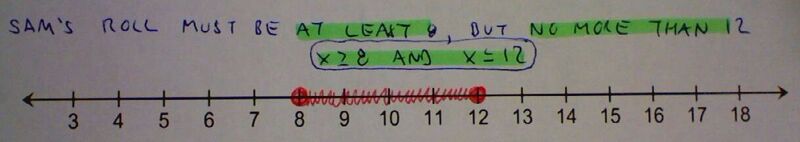 SAM'S ROLL MUST BE AT LEAST 8, BUT NO MORE THAN 12
X ≥ 8 AND X ≤ 12
3 4 5 6 7 8 9 10 11 12 13 14 15 16 17 18